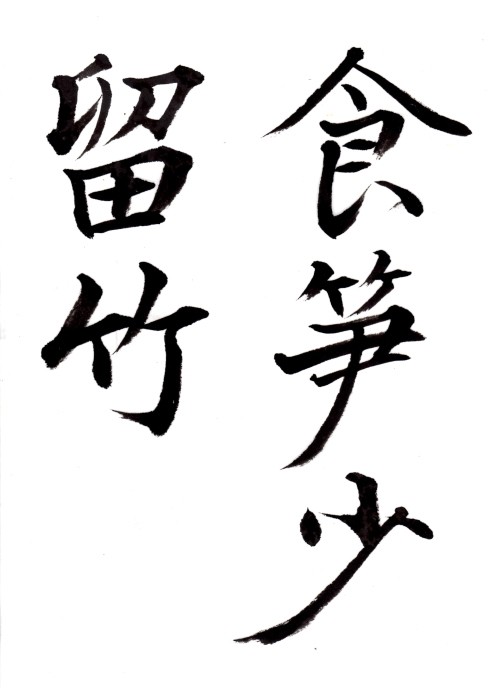 食笋少
留竹